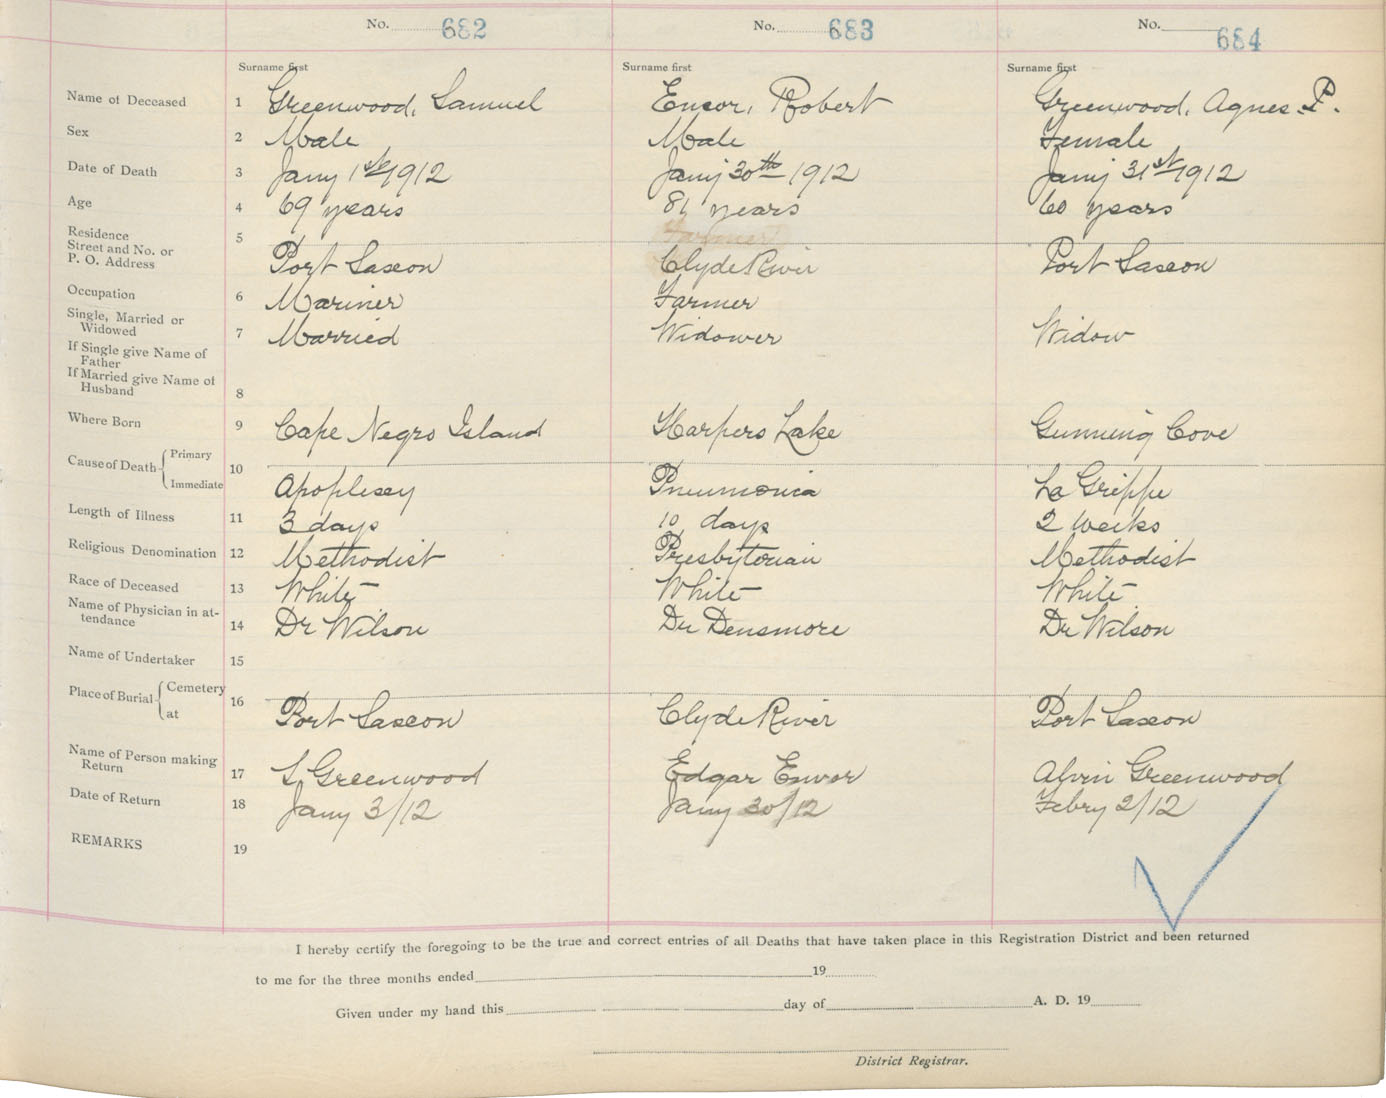 No. 682 No. 683 No. 684
Surname first Surname first Surname first
Name of Deceased 1 Greenwood, Samuel Ensor, Robert Greenwood, Agnes. P.
Sex 2 Male Male Female
Date of Death 3 Jany 1st 1912 Jany 30th 1912 Jany 31st 1912
Age 4 69 years 81 years 60 years
Residence 5 Farmer
Street and No. or
P. O. Address Port Saxon Clyde River Port Saxon
Occupation 6 Mariner Farmer
Single, Married or
Widowed 7 Married Widower Widow
If Single give Name of
Father
If Married give Name of
Husband 8
Where Born 9 Cape Negro Island Harpers Lake Gunning Cove
Cause of Death Primary 10
Immediate Apoplexy Pneumonia La Grippe
Length of Illness 11 3 days 10 days 2 weeks
Religious Denomination 12 Methodist Presbyterian Methodist
Race of Deceased 13 White White White
Name of Physician in at-
tendance 14 Dr Wilson Dr Densmore Dr Wilson
Name of Undertaker 15
Place of Burial Cemetery 16
at Port Saxon Clyde River Port Saxon
Name of Person making
Return 17 S. Greenwood Edgar Ensor Alvin Greenwood
Date of Return 18 Jany 3/12 Jany 30/12 Febry 2/12
REMARKS 19
I hereby certify the foregoing to be the true and correct entries of all Deaths that have taken place in this Registration District and been returned
to me for the three months ended 19
Given under my hand this day of A. D. 19
District Registrar.